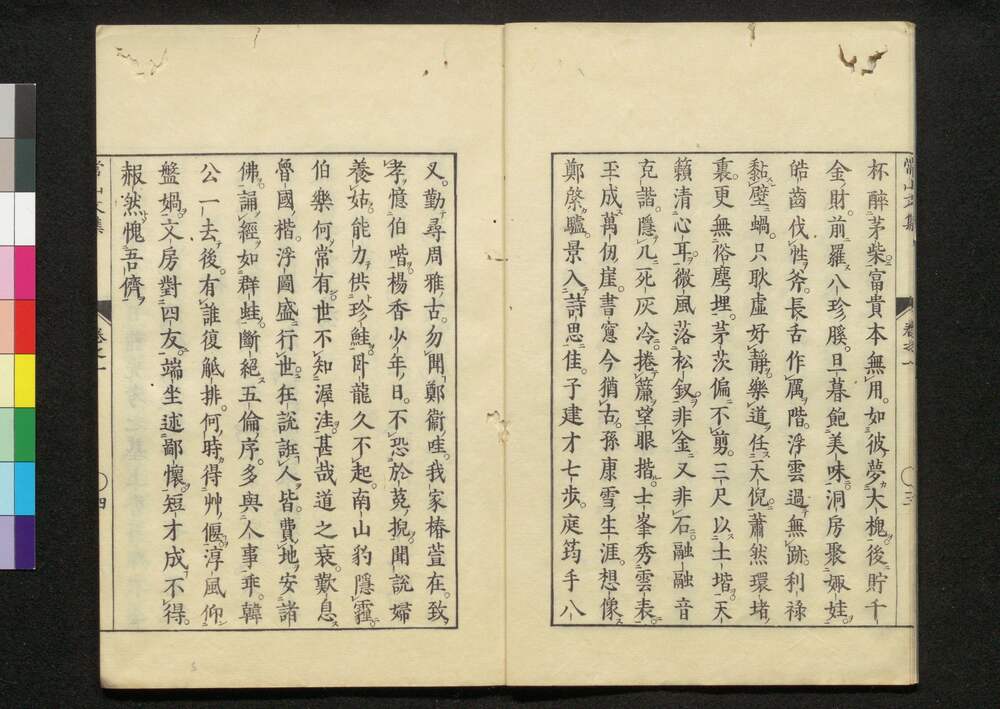 杯醉茅柴富貴本無用如彼夢大槐後貯千
金財前羅八珍膎旦暮飽美味洞房聚娵娃
皓齒伐性斧長舌作厲階浮雲過無跡利祿
黏壁蝸只耿虛好靜樂道任天倪蕭然環堵
裏更無俗塵埋茅茨偏不剪三尺以土堦天
籟清心耳微風落松釵非金又非石融融音
克諧隱几死灰冷捲簾望眼揩士峯秀雲表
玉成萬仞崖書窓今猶古孫康雪生涯想像
鄭棨驢景入詩思佳子建才七步庭筠手八
叉勤尋周雅古勿聞鄭衞哇我家椿萱在致
孝憶伯喈楊香少年日不恐於菟猊聞說婦
養姑能力供珍鮭臥龍久不起南山豹隱霾
伯樂何常有世不知渥洼甚哉道之衰歎息
魯國楷浮圖盛行世狂說誑人皆費地安諸
佛誦經如群蛙斷絕五倫序多與人事乖韓
公一去後有誰復觝排何時得艸偃淳風仰
盤媧文房對四友端坐述鄙懷短才成不得
赧然愧吾儕
常山文集
卷之一
四